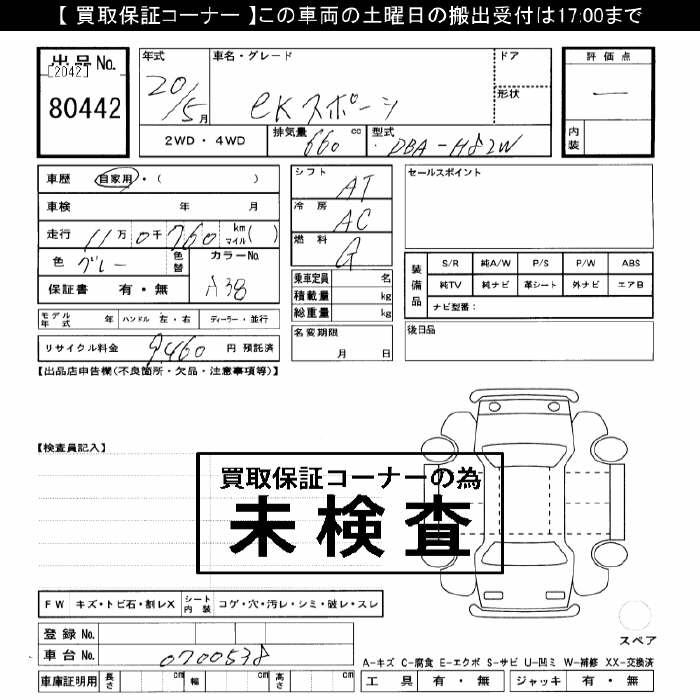 【 買取保証コーナー 】この車両の土曜日の搬出受付は17:00まで
出品No.
[2042]
80442
年式 20/5月
車名・グレード eKスポーツ
ドア
形状
評価点 —
内装
2WD・4WD
排気量 660 cc
型式 DBA-H82W
車歴 自家用・( )
車検 年 月
走行 11万0千760 km マイル( )
色 グレー 色替
カラーNo. A38
保証書 有・無
シフト AT
冷房 AC
燃料 G
乗車定員 名
積載量 kg
総重量 kg
セールスポイント
装備品 S/R 純A/W P/S P/W ABS
純TV 純ナビ 革シート 外ナビ エアB
ナビ型番:
モデル年式 年 ハンドル 左・右 ディーラー・並行
名変期限 月 日
後日品
リサイクル料金 9,460 円 預託済
【出品店申告欄(不良箇所・欠品・注意事項等)】
【検査員記入】
買取保証コーナーの為
未検査
FW キズ・トビ石・割レX シート内装 コゲ・穴・汚レ・シミ・破レ・スレ
登録No.
車台No. 0700538
スペア
車庫証明用 長さ cm 幅 cm 高さ cm
A-キズ C-腐食 E-エクボ S-サビ U-凹ミ W-補修 XX-交換済
工具 有・無 ジャッキ 有・無